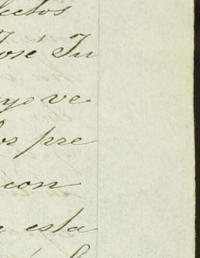 lectos
José Ju
ye ve
los pre
con
esta